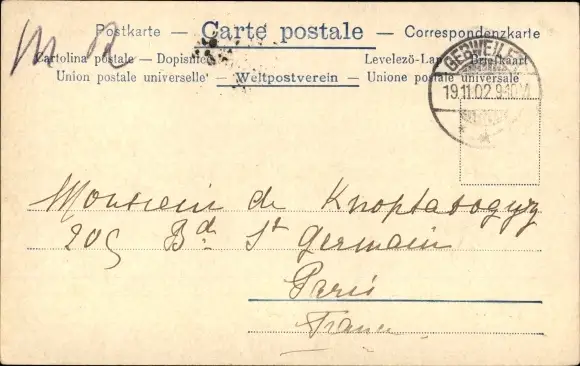 Postkarte — Carte postale — Correspondenzkarte
Cartolina postale — Dopisnice Levelező-Lap — Briefkaart
Union postale universelle — Weltpostverein — Unione postale universale
GEBWEILER
19.11.02. 9-10 V
Monsieur de
205 Bd St Germain
Paris
France